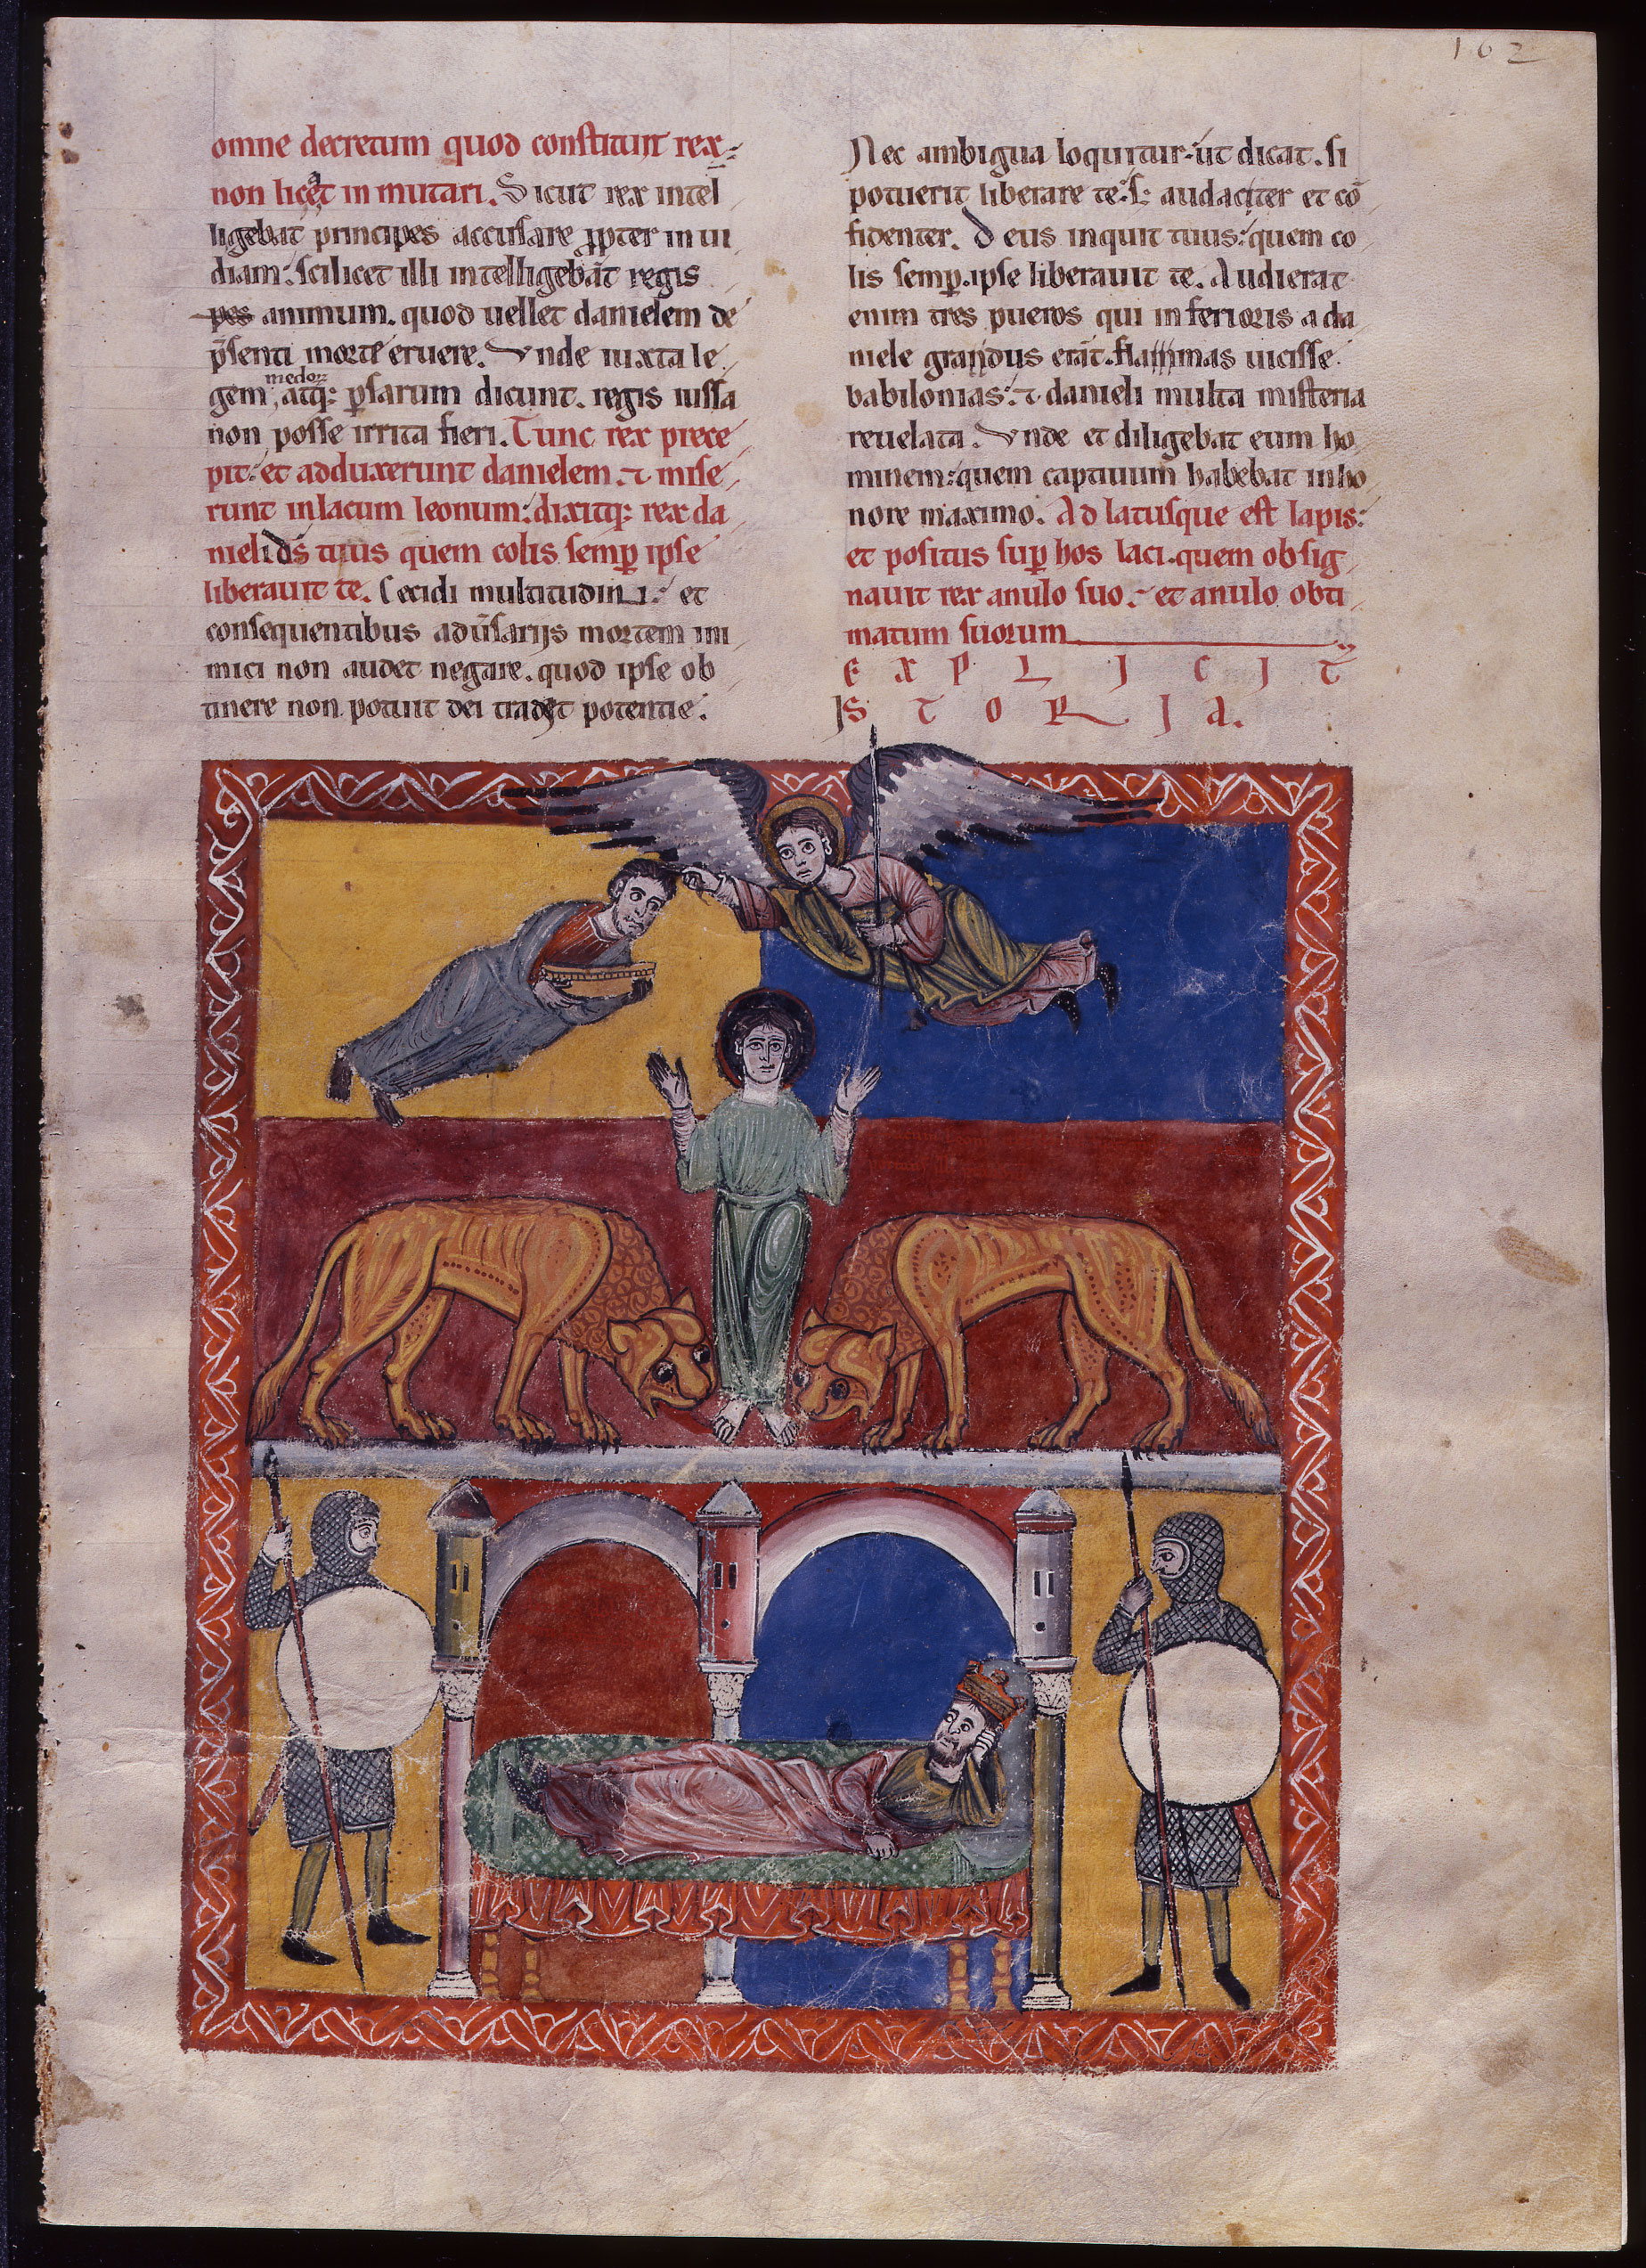 162
omne decretum quod constituit rex
non licet inmutari. Sicut rex intel
ligebat principes accusare ꝓpter inui
diam: scilicet illi intelligebāt regis
pes animum. quod uellet danielem de
p̄senti morte eruere. Vnde iuxta le
gem medoꝝ atq: ꝑsarum dicunt. regis iussa
non posse irrita fieri. Tunc rex prece
pit: et adduxerunt danielem. ⁊ mise
runt inlacum leonum: dixitq: rex da
nieli ds̄ tuus quem colis semꝑ ipse
liberauit te. Cecidi multitudini: et
consequentibus adūsarijs mortem ini
mici non audet negare. quod ipse ob
tinere non potuit dei tradet potentie.
Nec ambigua loquitur. ut dicat. si
potuerit liberare te: s: audaciter et cō
fidenter. Deus inquit tuus: quem co
lis semꝑ. ipse liberauit te. Audierat
enim tres pueros qui inferioris a da
niele gradus erāt. flammas uicisse
babilonias: ⁊ danieli multa misteria
reuelata. Vnde et diligebat eum ho
minem: quem captiuum habebat inho
nore maximo. Adlatusque est lapis:
et positus suꝑ hos laci. quem obsig
nauit rex anulo suo. et anulo obti
matum suorum
EXPLJCJT
JSTORJA.